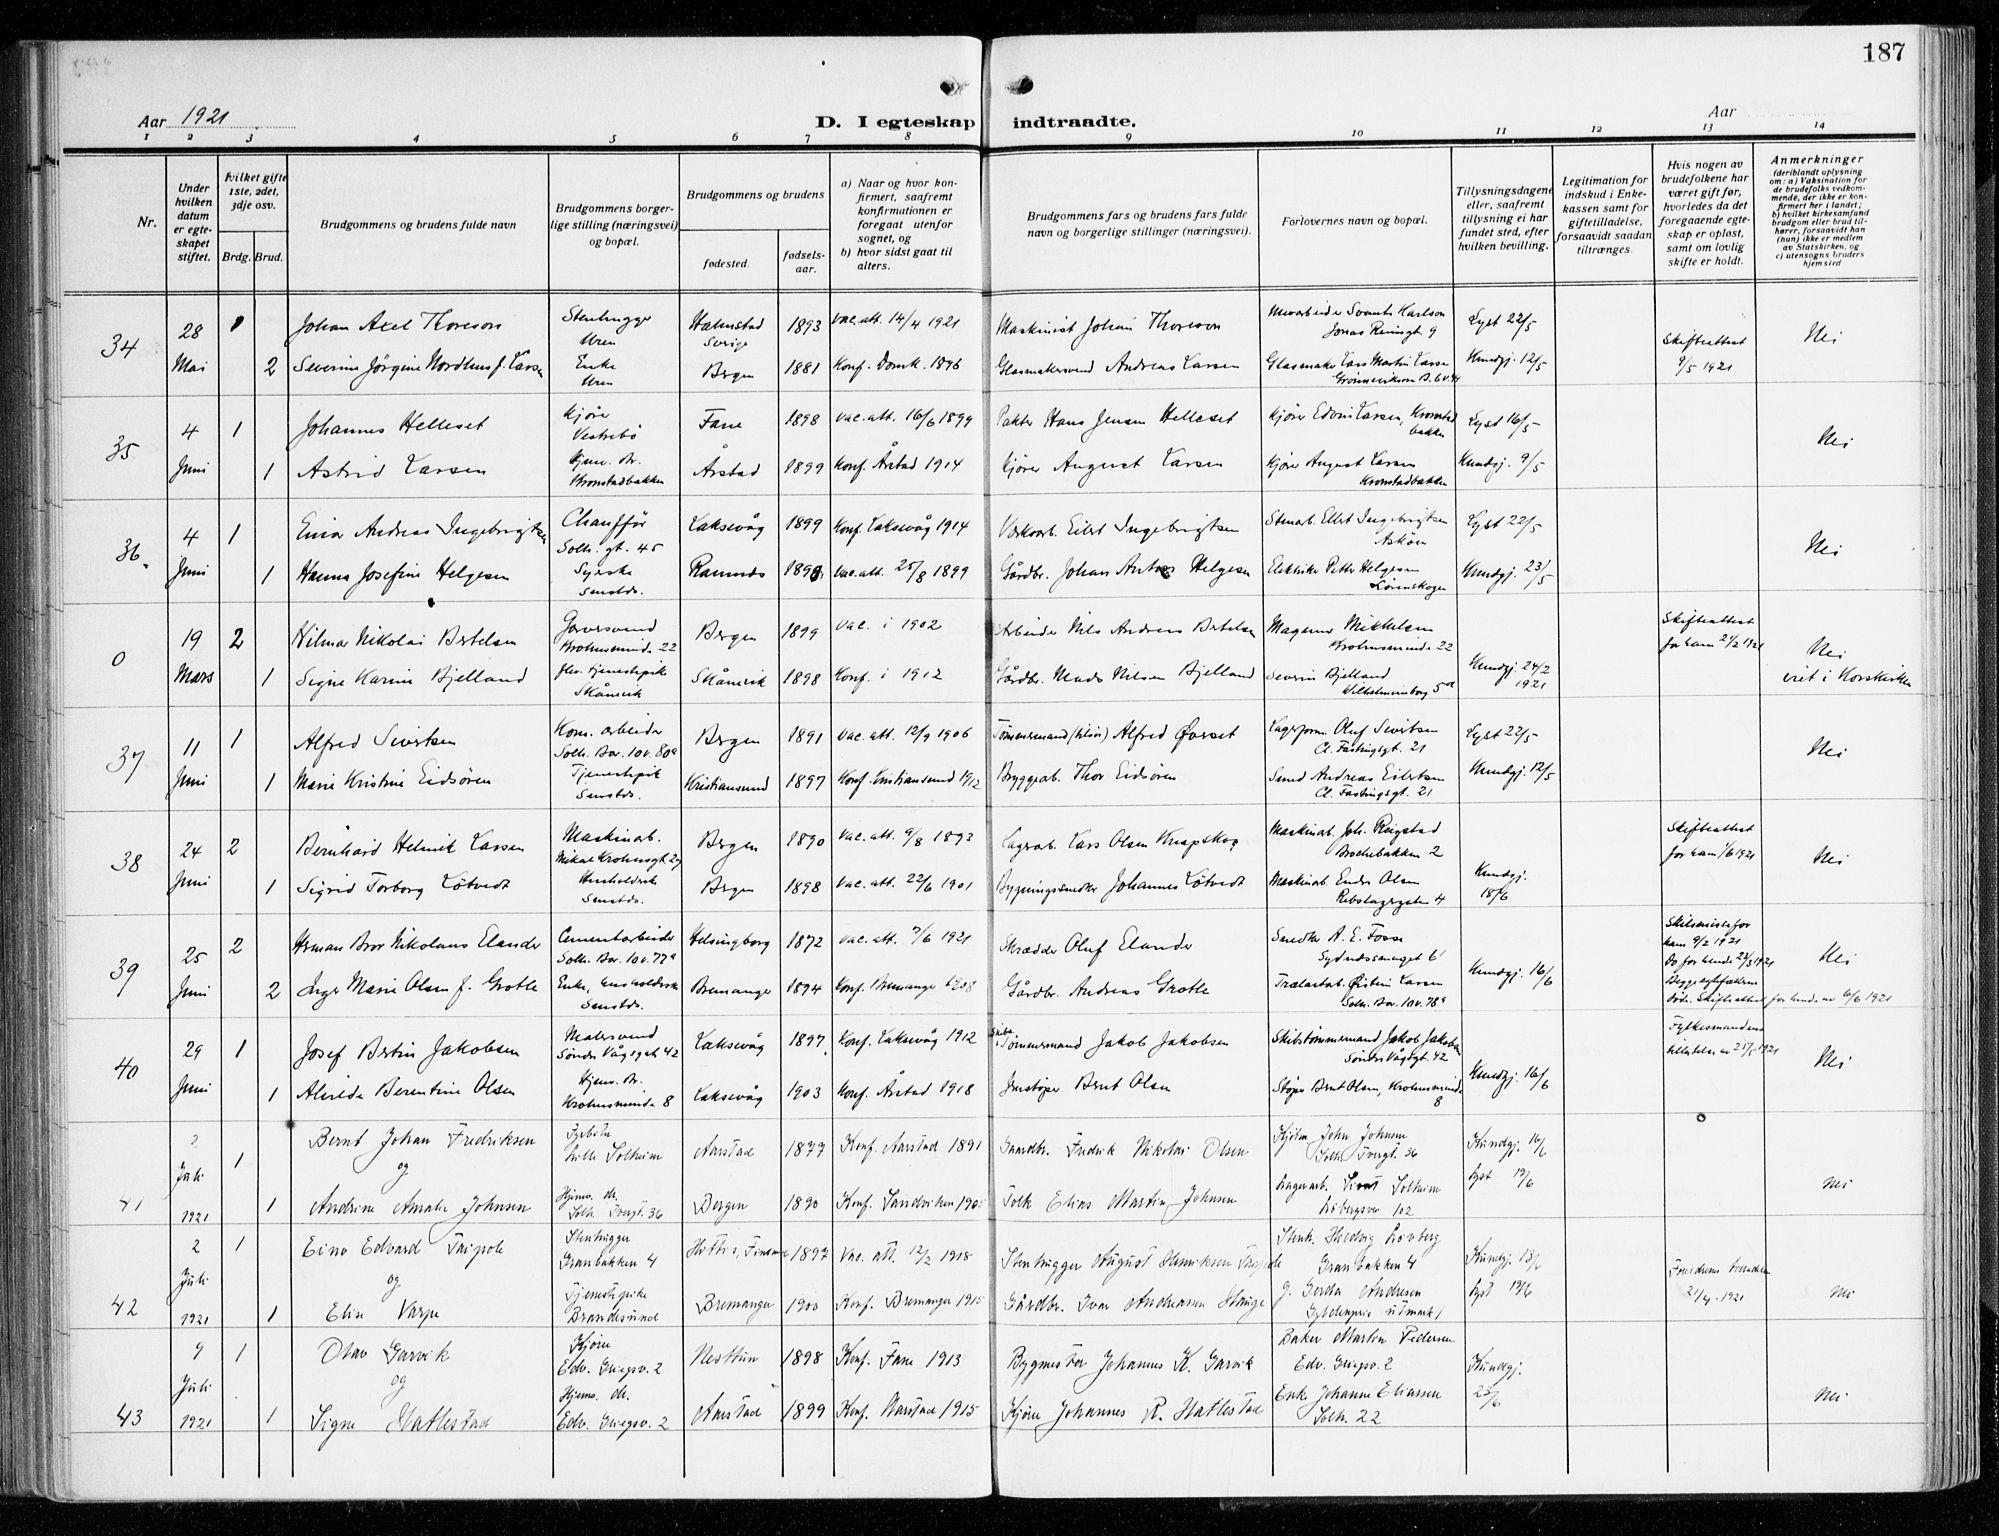 187
Aar 1921
D. I egteskap indtraadte.
Aar
1 2 3 4 5 6 7 8 9 10 11 12 13 14
Nr.
Under hvilken datum er egteskapet stiftet.
hvilket gifte 1ste, 2det, 3dje osv.
Brdg. Brud.
Brudgommens og brudens fulde navn
Brudgommens borgerlige stilling (næringsvei) og bopæl.
Brudgommens og brudens
fødested.
fødselsaar.
a) Naar og hvor konfirmert, saafremt konfirmationen er foregaat utenfor sognet, og
b) hvor sidst gaat til alters.
Brudgommens fars og brudens fars fulde navn og borgerlige stillinger (næringsvei).
Forlovernes navn og bopæl.
Tillysningsdagene eller, saafremt tillysning ei har fundet sted, efter hvilken bevilling.
Legitimation for indskud i Enkekassen samt for giftetilladelse, forsaavidt saadan tiltrænges.
Hvis nogen av brudefolkene har været gift før, hvorledes da det foregaaende egteskap er opløst, samt om lovlig skifte er holdt.
Anmerkninger (deriblandt oplysning om: a) Vaksination for de brudefolks vedkommende, der ikke er konfirmert her i landet; b) hvilket kirkesamfund brudgom eller brud tilhører, forsaavidt han (hun) ikke er medlem av Statskirken, og c) utensogns bruders hjemsted
34 28 Mai Johan Axel Thoreson Stenhugger Uren Halmstad Sverige 1893 Vac. att. 14/4 1921 Maskinist Johan Thoreson Svante Karlson Lyst 22/5 Skifteattest 9/5 1921 Nei
2 Severine Jørgine Nordhus f. Larsen Enke Uren Bergen 1881 Konf. Domk. 1896 Glasmakersvend Andreas Larsen Lars Martin Larsen Kundgj. 12/5
35 4 Juni 1 Johannes Helleset Kjører Vestrebø Fane 1898 Vac. att. 16/6 1899 Pakter Hans Jensen Helleset Kjører Edvin Larsen, Kronstadbakken Lyst 16/5 Nei
1 Astrid Larsen Hjem. dr. Kronstadbakken Årstad 1899 Konf. Årstad 1914 Kjører August Larsen Kjører August Larsen Kronstadbakken Kundgj. 9/5
36. 4 Juni 1 Einar Andreas Ingebrigtsen Chauffør Solh. gt. 45 Laksevåg 1899 Konf. Laksevåg 1914 Eilert Ingebrigtsen Stenarb. Eilert Ingebrigtsen Askøen Lyst 22/5 Nei
1 Hanna Josefine Helgesen Syerske Samstds. 1898 Vac. att. 25/8 1899 Gårdbr. Johan Helgesen Elektriker Petter Helgesen Kundgj. 23/5
0 19 Mars 2 Hilmar Nikolai Bertelsen Garversvend Krohnsminde 22 Bergen 1899 Vac. i 1902 Arbeider Nils Andreas Bertelsen Magnus Mikkelsen Krohnsminde 22 Kundgj. 24/2 1921 Skifteattest for ham 21/2 1921 Nei
1 Signe Karine Bjelland Skånevik Skånevik 1898 Konf. i 1912 Gårdbr. Mads Nilsen Bjelland Severin Bjelland Wilhelmineborg 5a viet i Korskirken
37 11 Juni 1 Alfred Sivertsen Kom. arbeider Solh. Bar. 10 v. 80a Bergen 1891 Vac. att. 12/9 1906 Alfred Øvrset Lagerform. Oluf Sivertsen Cl. Fastingsgt. 21 Lyst 22/5 Nei
1 Marie Kristine Eidsören Tjenestepik Samstds. Kristiansund 1897 Konf. Kristiansund 1912 Bryggearb. Thor Eidsören Smed Andreas Eilertsen Cl. Fastingsgt. 21 Kundgj. 12/5
38 24 Juni 2 Bernhard Helmik Larsen Maskinarb. Bergen 1890 Vac. att. 9/8 1893 Lagerarb. Lars Olsen Knapskog Maskinarb. Joh. Reigstad 2 Kundgj. 18/6 Skifteattest for ham 1/6 1921 Nei
1 Sigrid Torborg Løtvedt Husholderske Samstds. Bergen 1898 Vac. att. 22/6 1901 Bygningssnedker Johannes Løtvedt Maskinarb. Endre Olsen 4
39 25 Juni 2 Herman Bror Nikolaus Elander Cementarbeider Solh. Bar. 10 v. 77a Helsingborg 1872 Vac. att. 7/6 1921 Skrædder Oluf Elander Snedker A. E. Fosse Sydnessmuget 6 Kundgj. 16/6 Skilsmisse for ham 9/2 1921 Nei
2 Inger Marie Olsen f. Grotle Enke, husholderske Samstds. Bremanger 1894 Konf. Bremanger 1908 Gårdbr. Andreas Grotle Øistein Larsen Solh. Bar. 10 v. 78a Do for hende 23/5 1921 Skifteattest for hende 6/6 1921
40 29 Juni 1 Josef Bertin Jakobsen Malersvend Søndre Vågsgt. 42 Laksevåg 1897 Konf. Laksevåg 1912 Skibstømmermand Jakob Jakobsen Skibstømmermand Jakob Jakobsen Søndre Vågsgt. 42 Kundgj. 16/6 Fylkesmandens tilladelse 25/5 1921 Nei
1 Alvilde Berentine Olsen Hjem. dr. Krohnsminde 8 Laksevåg 1903 Konf. Årstad 1918 Jernstøper Bernt Olsen Støper Bernt Olsen, Krohnsminde 8
41 2 Juli 1921 1 Bernt Johan Fredriksen Fyrbøter Lille Solheim Aarstad 1877 Konf. Aarstad 1891 Gaardbr. Fredrik Nikolai Olsen John Johnsen Solh. Tvergt. 36 Kundgj. 16/6 nei
og
1 Andrine Amalie Johnsen Hjemv. dr. Solh. Tvergt. 36 Bergen 1890 Konf. Sandviken Tolk Elias Martin Johnsen Solheim 102 Lyst 19/6
42 2 Juli 1921 1 Eino Edvard Taipole Stenhugger Granbakken 4 1897 Vac. att. 12/2 1918 Stenhugger August Henriksen Taipole Stenh. Hedvig Lovberg Granbakken 4 Kundgj. 13/6 21/4 1921 nei
og
1 Elin Varpe Tjenestepike Brandesund Bremanger 1900 Konf. Bremanger 1915 Gårdbr. Ivar Andreasen Hauge Gerda Andresen Lyst 19/6
43 9 Juli 1921 1 Olav Garvik Kjører Edv. Griegsv. 2 Nesttun 1898 Konf. Fane 1913 Bygmester Johannes K. Garvik Baker Martin Pedersen Edv. Griegsv. 2 Kundgj. 25/6 nei
og
1 Signe Hatlestad Hjemv. dr. Edv. Griegsv. 2 Aarstad 1899 Konf. Aarstad 1915 Kjører Johannes R. Hatlestad Enke Johanne Eliassen Solh. 22